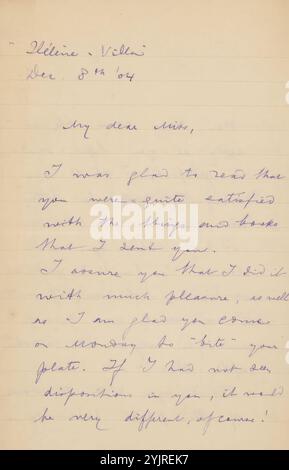 Hélène-Villa
Dec. 8th '04
My dear Miss,
I was glad to read that
you were quite satisfied
with the things and books
that I sent you.
I assure you that I did it
with much pleasure, as well
as I am glad you come
on Monday to "bite" your
plate. If I had not seen
dispositions in you, it would
be very different, of course!
alamy
Image ID: 2YJREK7
www.alamy.com